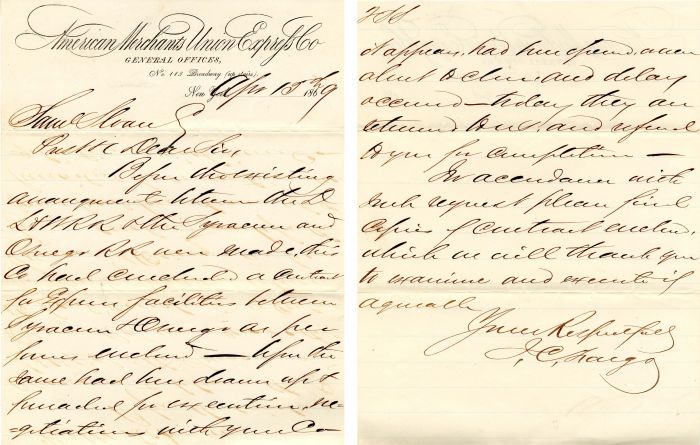 American Merchants Union Express Co
GENERAL OFFICES,
No. 113 Broadway (up stairs),
New York Apr 15th 1869
Saml Sloan
Pres &c Dear Sir,
Before the existing
arrangements between the D
L & W RR & the Syracuse and
Oswego RR were made, this
Co had concluded a contract
for Express facilities between
Syracuse & Oswego as per
forms enclosed — After the
same had been drawn up &
forwarded for execution, ne-
gotiations with your Co
it appears, had been opened, and
about to close, and delay
occurred — today they are
returned to us, and referred
to you for completion —
In accordance with
such request please find
copies of contract enclosed,
which we will thank you
to examine and execute if
agreeable
Yours Respectfully
J. C. Fargo